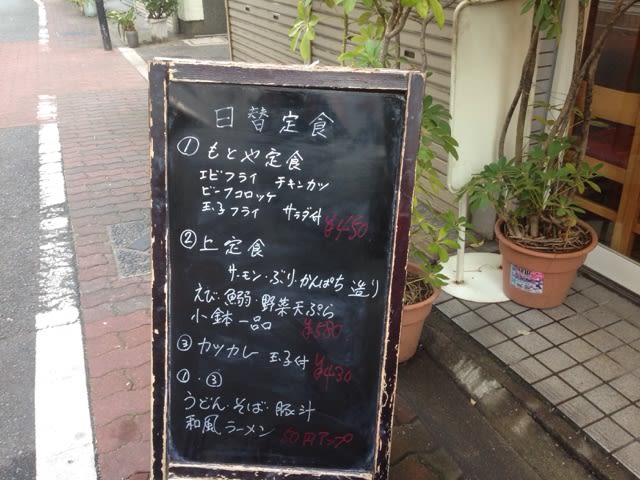 日替定食
① もとや定食
エビフライ チキンカツ
ビーフコロッケ
玉子フライ サラダ付 ¥450
② 上定食
サーモン・ぶり・かんぱち 造り
えび・鰯・野菜天ぷら
小鉢一品 ¥580
③ カツカレー 玉子付 ¥430
①・③
うどん・そば・豚汁
和風ラーメン 50円アップ